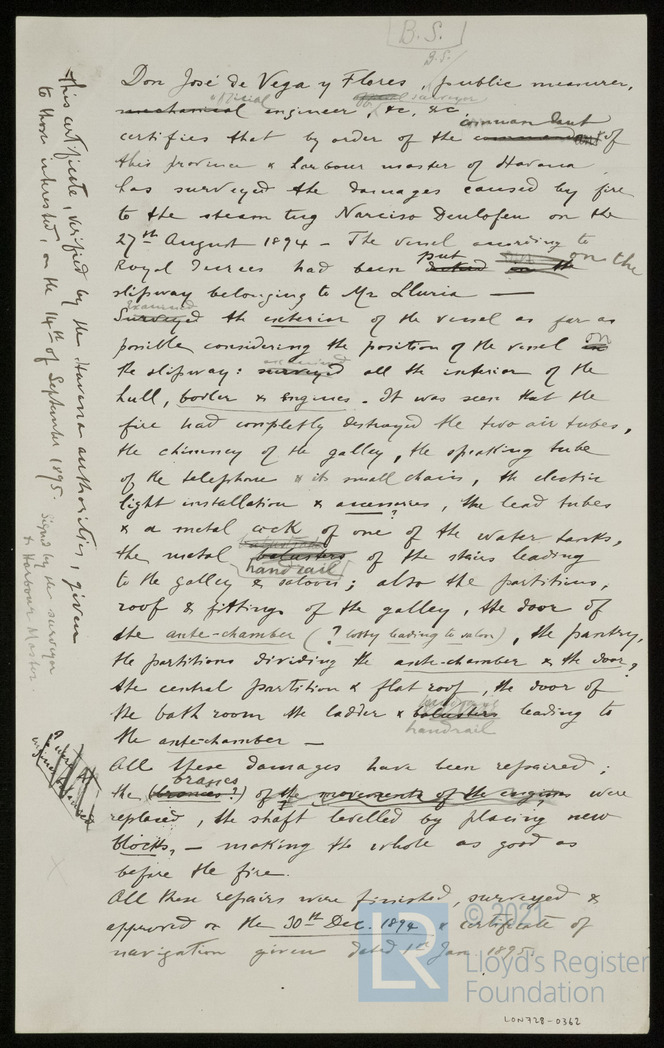 B.S.
Don José de Vega y Flores, public measurer,
official surveyor
mechanical engineer, &c, &c
commandant
certifies that by order of the of
this province & harbour master of Havana
has surveyed the damages caused by fire
to the steam tug Narciso Deulofeu on the
27th August 1894 - The vessel according to
put on the
Royal Decrees had been
slipway belonging to Mr Lluria —
examined
Surveyed the exterior of the vessel as far as
possible considering the position of the vessel on
examined
the slipway: surveyed all the interior of the
hull, boiler & engines. It was seen that the
fire had completly destroyed the two air tubes,
the chimney of the galley, the speaking tube
of the telephone & its small chains, the electric
light installation & accessories, the lead tubes
?
& a metal cock of one of the water tanks,
the metal balusters of the stairs leading
handrail
to the galley & saloon; also the partitions,
roof & fittings of the galley, the door of
the ante-chamber (? lobby leading to saloon), the pantry,
the partitions dividing the ante-chamber & the door,
the central partition & flat roof, the door of
the bath room the ladder & balusters leading to
handrail
the ante-chamber —
All these damages have been repaired;
brasses
the (bronces?) of the movements of the engines were
replaced, the shaft levelled by placing new
blocks, — making the whole as good as
before the fire.
All these repairs were finished, surveyed &
approved on the 30th Dec. 1894 & certificate of
navigation given dated 1st Jan 1895.
This certificate, verified by the Havana authorities, given
to those interested, on the 14th of September 1895.
Signed by the surveyor
& Harbour Master.
© 2021
LR
Lloyd's Register
Foundation
LON728-0362